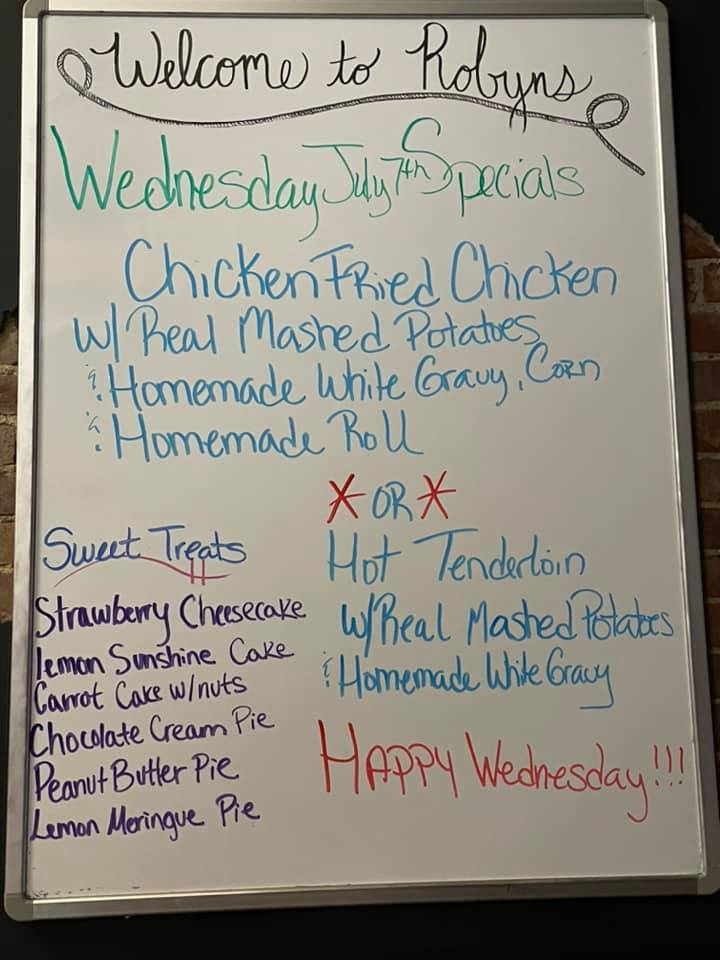 Welcome to Robyns
Wednesday July 7th Specials
Chicken Fried Chicken
w/ Real Mashed Potatoes
& Homemade White Gravy, Corn
& Homemade Roll
* OR *
Hot Tenderloin
w/ Real Mashed Potatoes
& Homemade White Gravy
HAPPY Wednesday!!!
Sweet Treats
Strawberry Cheesecake
lemon Sunshine Cake
Carrot Cake w/nuts
Chocolate Cream Pie
Peanut Butter Pie
Lemon Meringue Pie